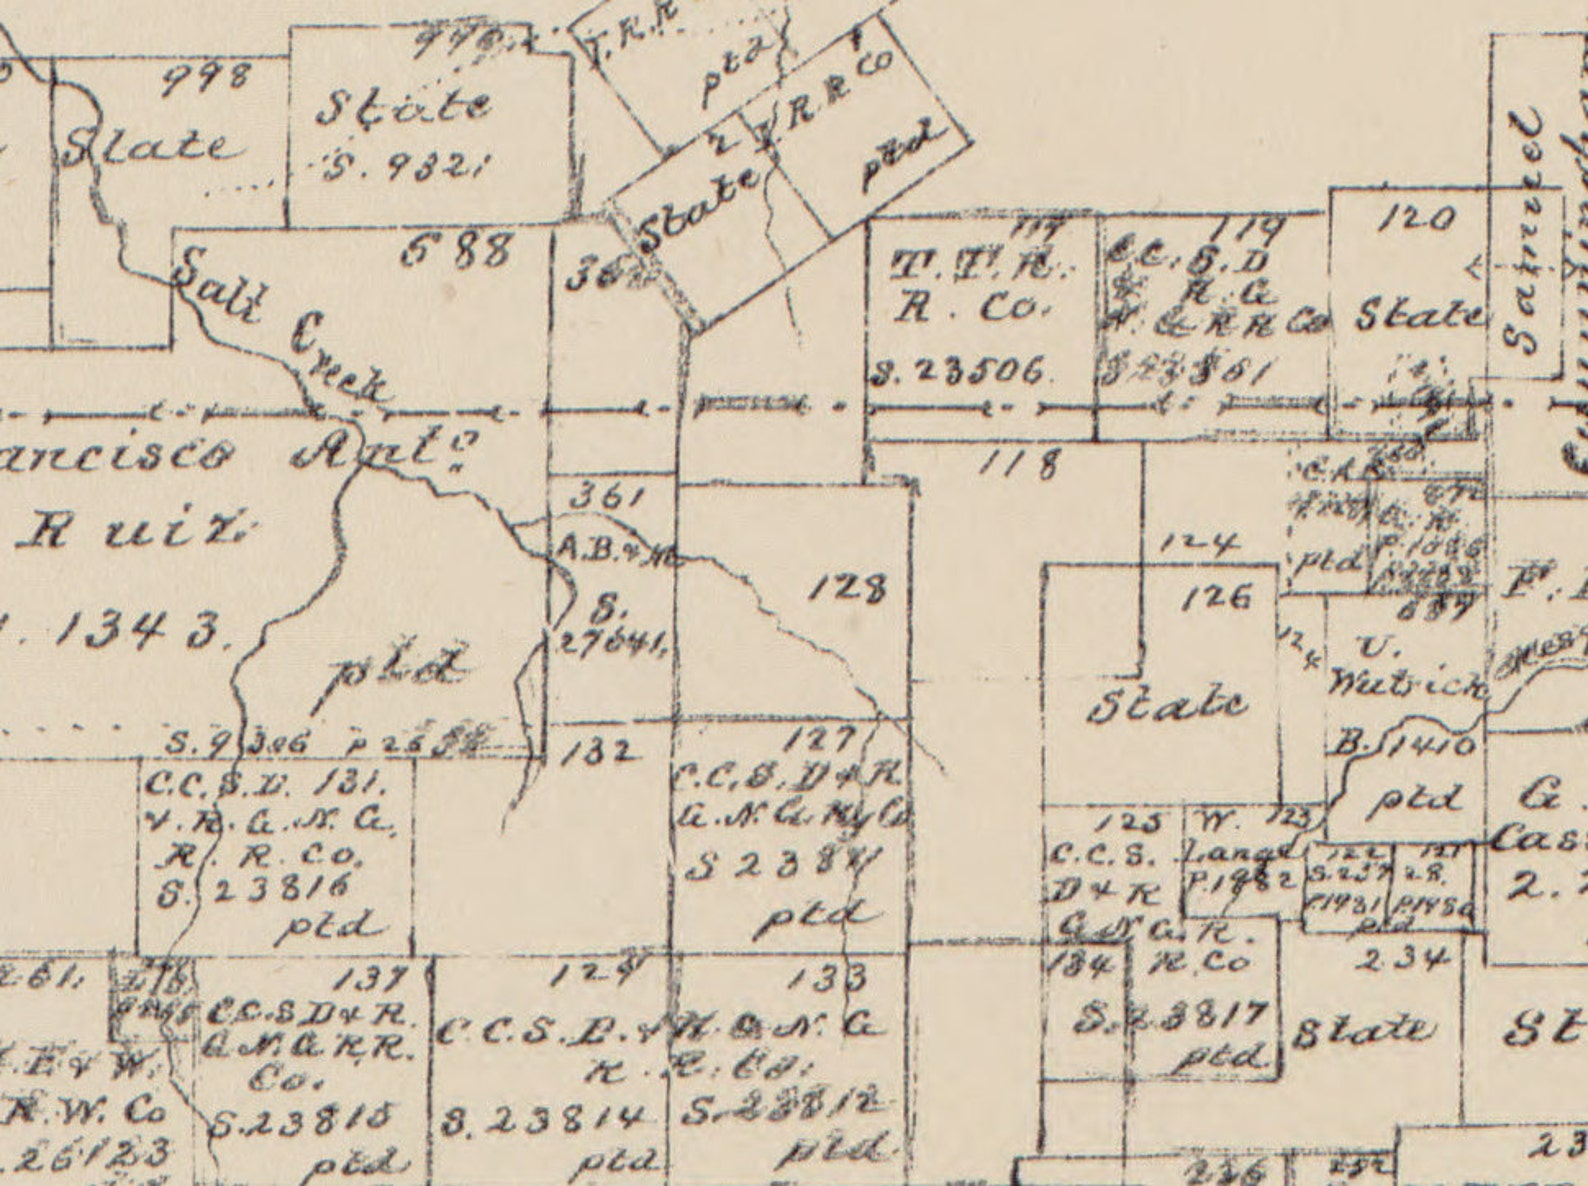 998
State
State
S. 932
T.R.R
ptd
2
T.R.R Co
State
ptd
Samuel
688
Salt
Creek
T. T. R.
R. Co.
S. 23506
119
C.C. S.D
& R.G
N.G R R Co
120
State
ancisco Anto
Ruiz
1343.
ptd
361
A.B. & M
S.
27641.
128
118
124
ptd
126
State
124
687
U.
Wutrick
B. 1410
ptd
132
127
C.C.S.D & R
G.N.G. Ry Co
ptd
C.C.S.D. 131.
& R.G.N.G.
R. R. Co.
S. 23816
ptd
125
C.C.S.
D & R
G N G. R.
R. Co
134
S. 23817
ptd
W. 123
Lange
P.1982
122
121
G.
Cas
2.
234
State
St
261.
E & W.
R.W. Co
26123
137
C.C.S D & R.
G.N.G R.R.
Co.
S. 23815
ptd
129
133
C.C.S.D. & R.G.N.G
R. R. Co.
S. 23814
ptd
S. 23812
ptd
236
23